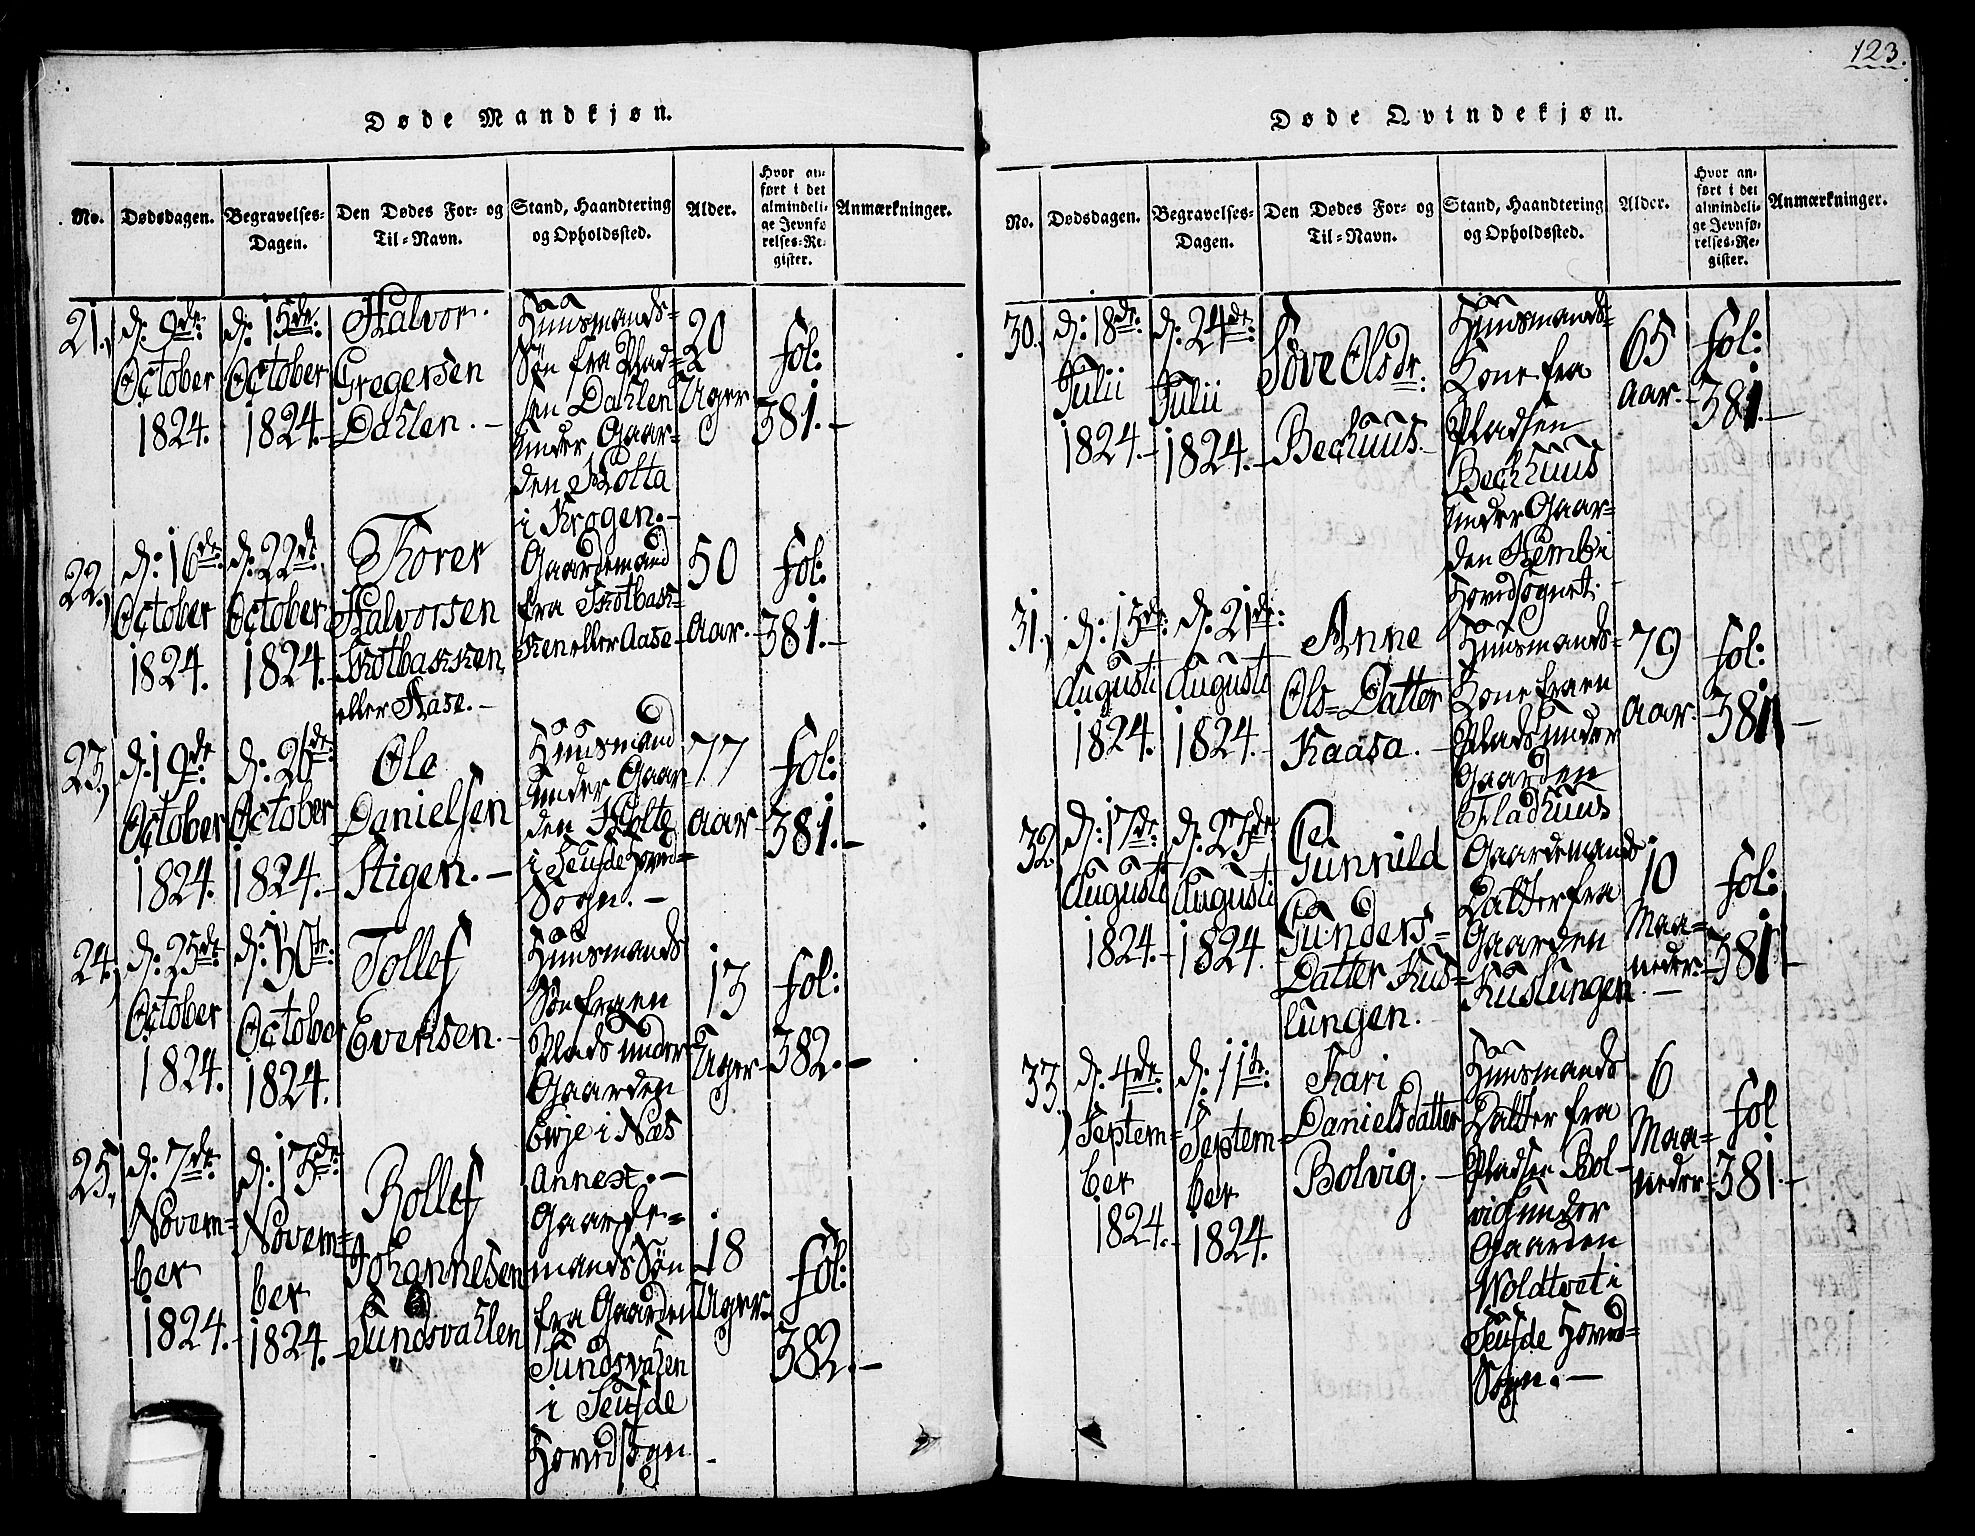 123.
Døde Mandkjøn.
No. Dødsdagen. Begravelses-Dagen. Den Dødes For- og Til-Navn. Stand, Haandtering og Opholdssted. Alder. Hvor anført i det almindelige Jevnførelses-Register. Anmærkninger.
21.
d: 9de:
October
1824.
d: 15de:
October
1824.-
Halvor
Gregersen
Dahlen.-
Huusmands=
Søn fra Plad=
sen Dahlen
under Gaar=
den Holta
i Krogen.-
20
Uger
fol:
381.-
22.
d: 16de:
October
1824.
d: 22de
October
1824.-
Thorer
Halvorsen
Skotbakken
eller Aase.-
Gaardemand
fra Skotbak=
ken eller Aase-
50
Aar.-
fol:
381.-
23.
d: 19de
October
1824.
d: 26de:
October
1824.-
Ole
Danielsen
Stigen.-
Huusmand
under Gaar
den Holte
i Seufde Hoved=
Sogn.-
77
Aar-
fol:
381.-
24.
d: 25de
October
1824.
d: 30te:
October
1824.
Tollef
Evensen.-
Huusmands
Søn fra en
Plads under
Gaarden
Erje i Næs
Annext.-
13
Uger-
fol:
382.-
25.
d: 7de
Novem=
ber
1824.-
d: 13de:
Novem=
ber
1824.-
Rollef
Johannesen
Sundsvahlen
Gaarde=
mands Søn
fra Gaarden
Sundsvahlen
i Seufde
Hovedsogn
18
Uger
fol:
382.-
Døde Qvindekjøn.
No. Dødsdagen. Begravelses-Dagen. Den Dødes For- og Til-Navn. Stand, Haandtering og Opholdssted. Alder. Hvor anført i det almindelige Jevnførelses-Register. Anmærkninger.
30.
d: 18de:
Julii
1824.-
d: 24de:
Julii
1824.-
Søve Olsdr:
Bechuus.-
Huusmands=
Kone fra
Pladsen
Bechuus
under Gaar=
den i
Hovedsognet.
65
Aar.-
fol:
381.-
31.
d: 15de:
Augusti
1824.
d: 21de:
Augusti
1824.-
Anne
Ols=Datter
Kaasa.-
Huusmands=
Kone fra en
Plads under
Gaarden
Fladhuus
79
Aar.
fol:
381-
32.
d: 17de:
Augusti
1824.-
d: 23de:
Augusti
1824.
Gunnild
Gunders=
Datter Kus=
lungen.
Gaardemands
Datter fra
Gaarden
Kuslungen.-
10
Maa=
neder.-
fol:
381-
33.
d: 4de:
Septem=
ber
1824.-
d: 11te:
Septem=
ber
1824.
Kari
Danielsdatter
Bolvig.-
Huusmands
Datter fra
Pladsen Bol-
vig under
Gaarden
Woldtvet i
Seufde Hoved=
Sogn.-
6
Maa=
neder-
fol
381.-